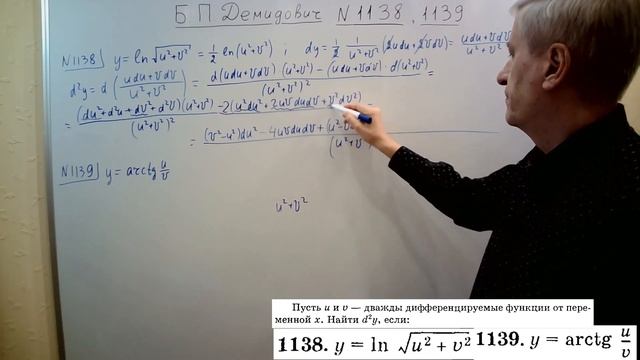 Б П Демидович N 1138, 1139
N1138) y = ln √(u²+v²) = 1/2 ln(u²+v²) ; dy = 1/2 1/(u²+v²) (2udu+2vdv) = (udu+vdv)/(u²+v²)
d²y = d((udu+vdv)/(u²+v²)) = (d(udu+vdv)(u²+v²) - (udu+vdv)·d(u²+v²))/(u²+v²)² =
= ((du²+d²u+dv²+d²v)(u²+v²) - 2(u²du²+2uvdudv+v²dv²))/(u²+v²)² =
= ((v²-u²)du² - 4uvdudv + (u²-v
(u²+v
N1139) y = arctg u/v
u²+v²
Пусть u и v — дважды дифференцируемые функции от пере-
менной x. Найти d²y, если:
1138. y = ln √(u² + v²) 1139. y = arctg u/v